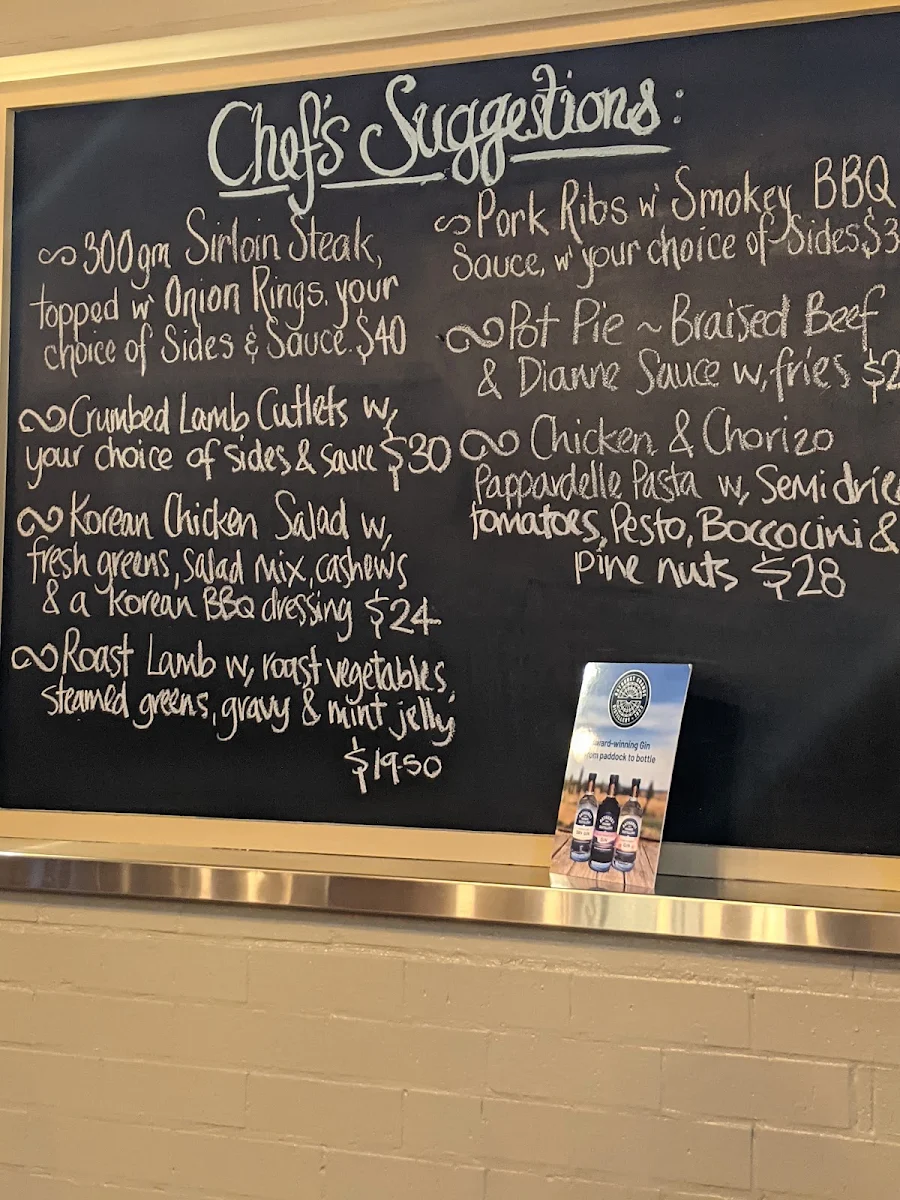 Chef's Suggestions:
300gm Sirloin Steak,
topped w' Onion Rings. your
choice of Sides & Sauce. $40
Crumbed Lamb Cutlets w,
your choice of sides & sauce $30
Korean Chicken Salad w,
fresh greens, salad mix, cashews
& a Korean BBQ dressing $24
Roast Lamb w, roast vegetables,
steamed greens, gravy & mint jelly
$19.50
Pork Ribs w' Smokey BBQ
Sauce, w' your choice of Sides $3
Pot Pie ~ Braised Beef
& Dianne Sauce w, fries $2
Chicken & Chorizo
Pappardelle Pasta w, Semi drie
tomatoes, Pesto, Boccocini &
pine nuts $28
award-winning Gin
from paddock to bottle